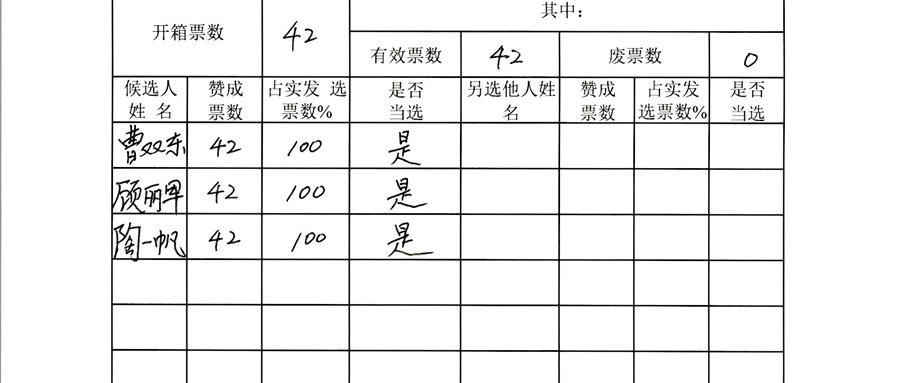 其中：
开箱票数 42
有效票数 42 废票数 0
候选人姓 名 赞成票数 占实发 选票数% 是否当选 另选他人姓名 赞成票数 占实发选票数% 是否当选
曹双东 42 100 是
顾丽군 42 100 是
陶一帆 42 100 是